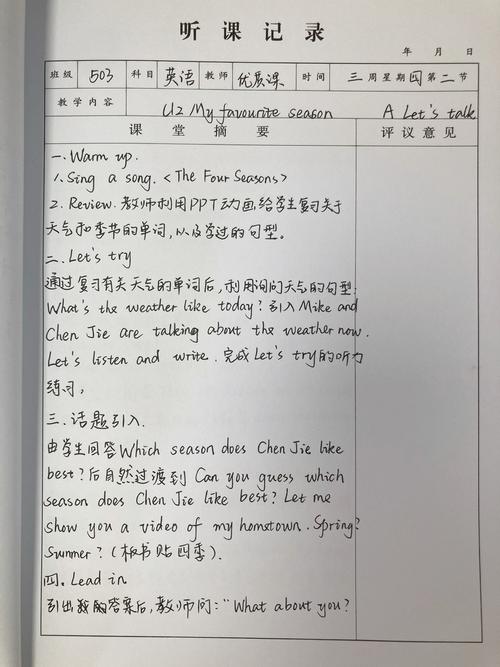 听课记录
年 月 日
班级 503 科目 英语 教师 优质课 时间 三周星期四第二节
教学内容 U2 My favourite season A Let's talk
课堂摘要 评议意见
一. Warm up.
1. Sing a song. <The Four Seasons>
2. Review. 教师利用PPT动画,给学生复习关于
天气和季节的单词,以及学过的句型。
二. Let's try
通过复习有关天气的单词后,利用询问天气的句型:
What's the weather like today? 引入 Mike and
Chen Jie are talking about the weather now.
Let's listen and write. 完成Let's try的听力
练习。
三. 话题引入.
由学生回答Which season does Chen Jie like
best? 后自然过渡到 Can you guess which
season does Chen Jie like best? Let me
show you a video of my homstown. Spring?
Summer? (板书贴四季).
四. Lead in
引出答案后,教师问:"What about you?